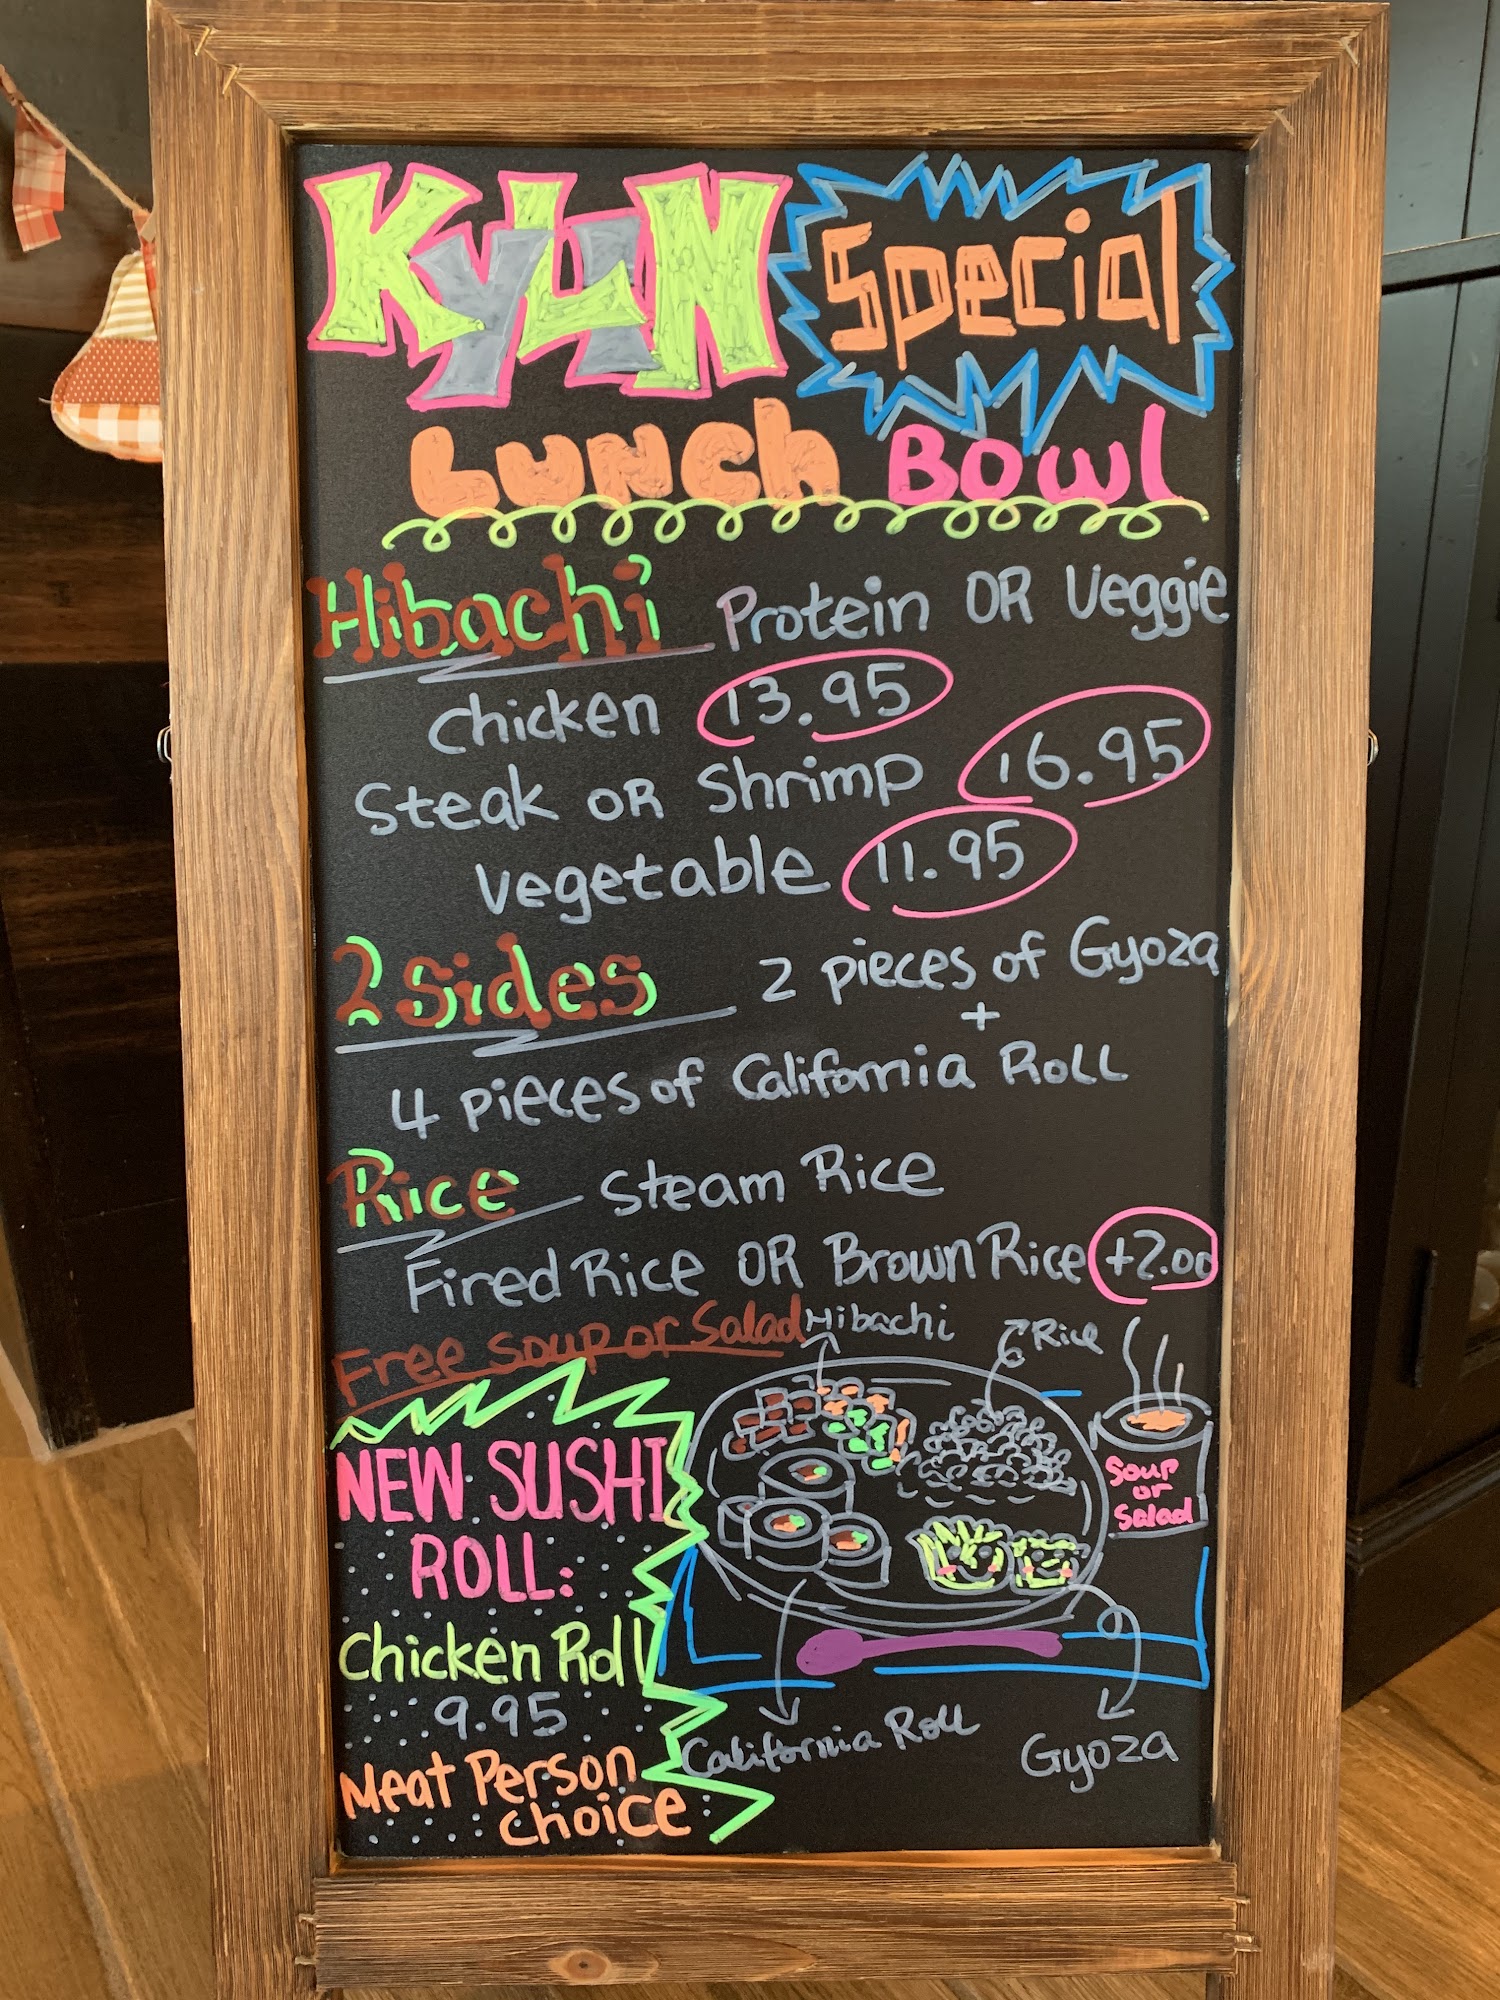 KYUN Special
Lunch Bowl
Hibachi Protein OR Veggie
chicken 13.95
Steak OR Shrimp 16.95
vegetable 11.95
2 Sides 2 pieces of Gyoza
+
4 pieces of California Roll
Rice Steam Rice
Fired Rice OR Brown Rice +2.00
Free soup or Salad
Hibachi
Rice
Soup
or
Salad
NEW SUSHI
ROLL:
Chicken Roll
9.95
Meat Person
choice
California Roll
Gyoza